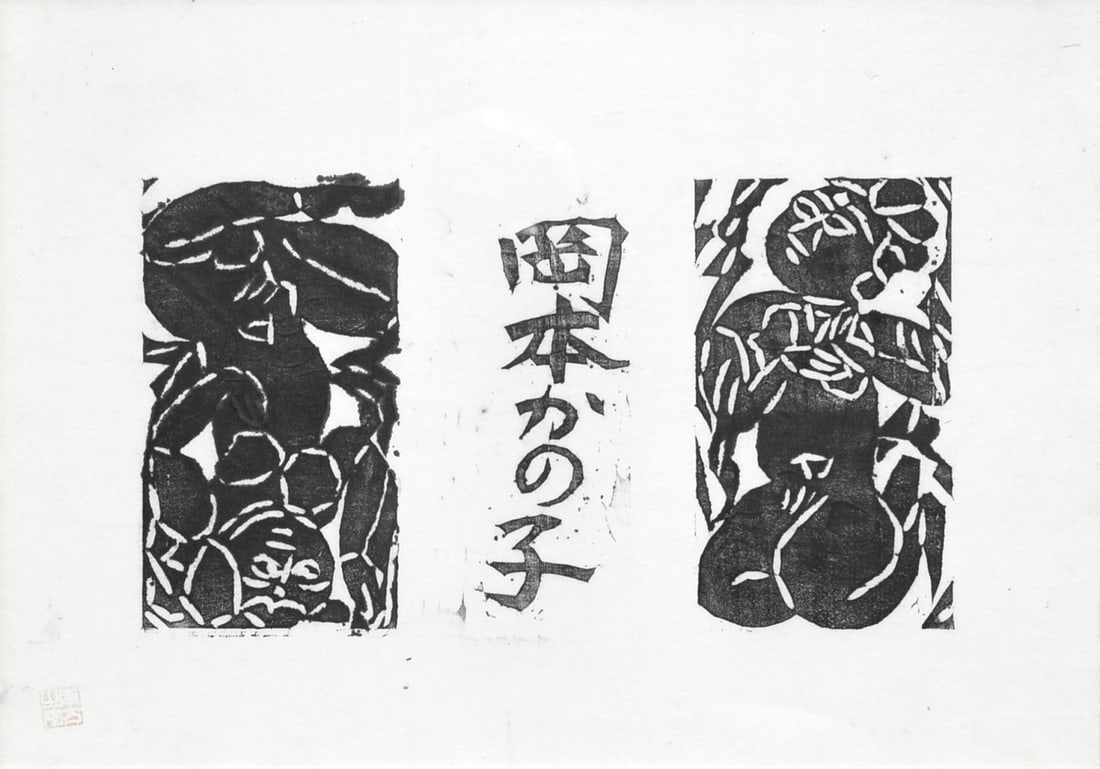 岡本かの子